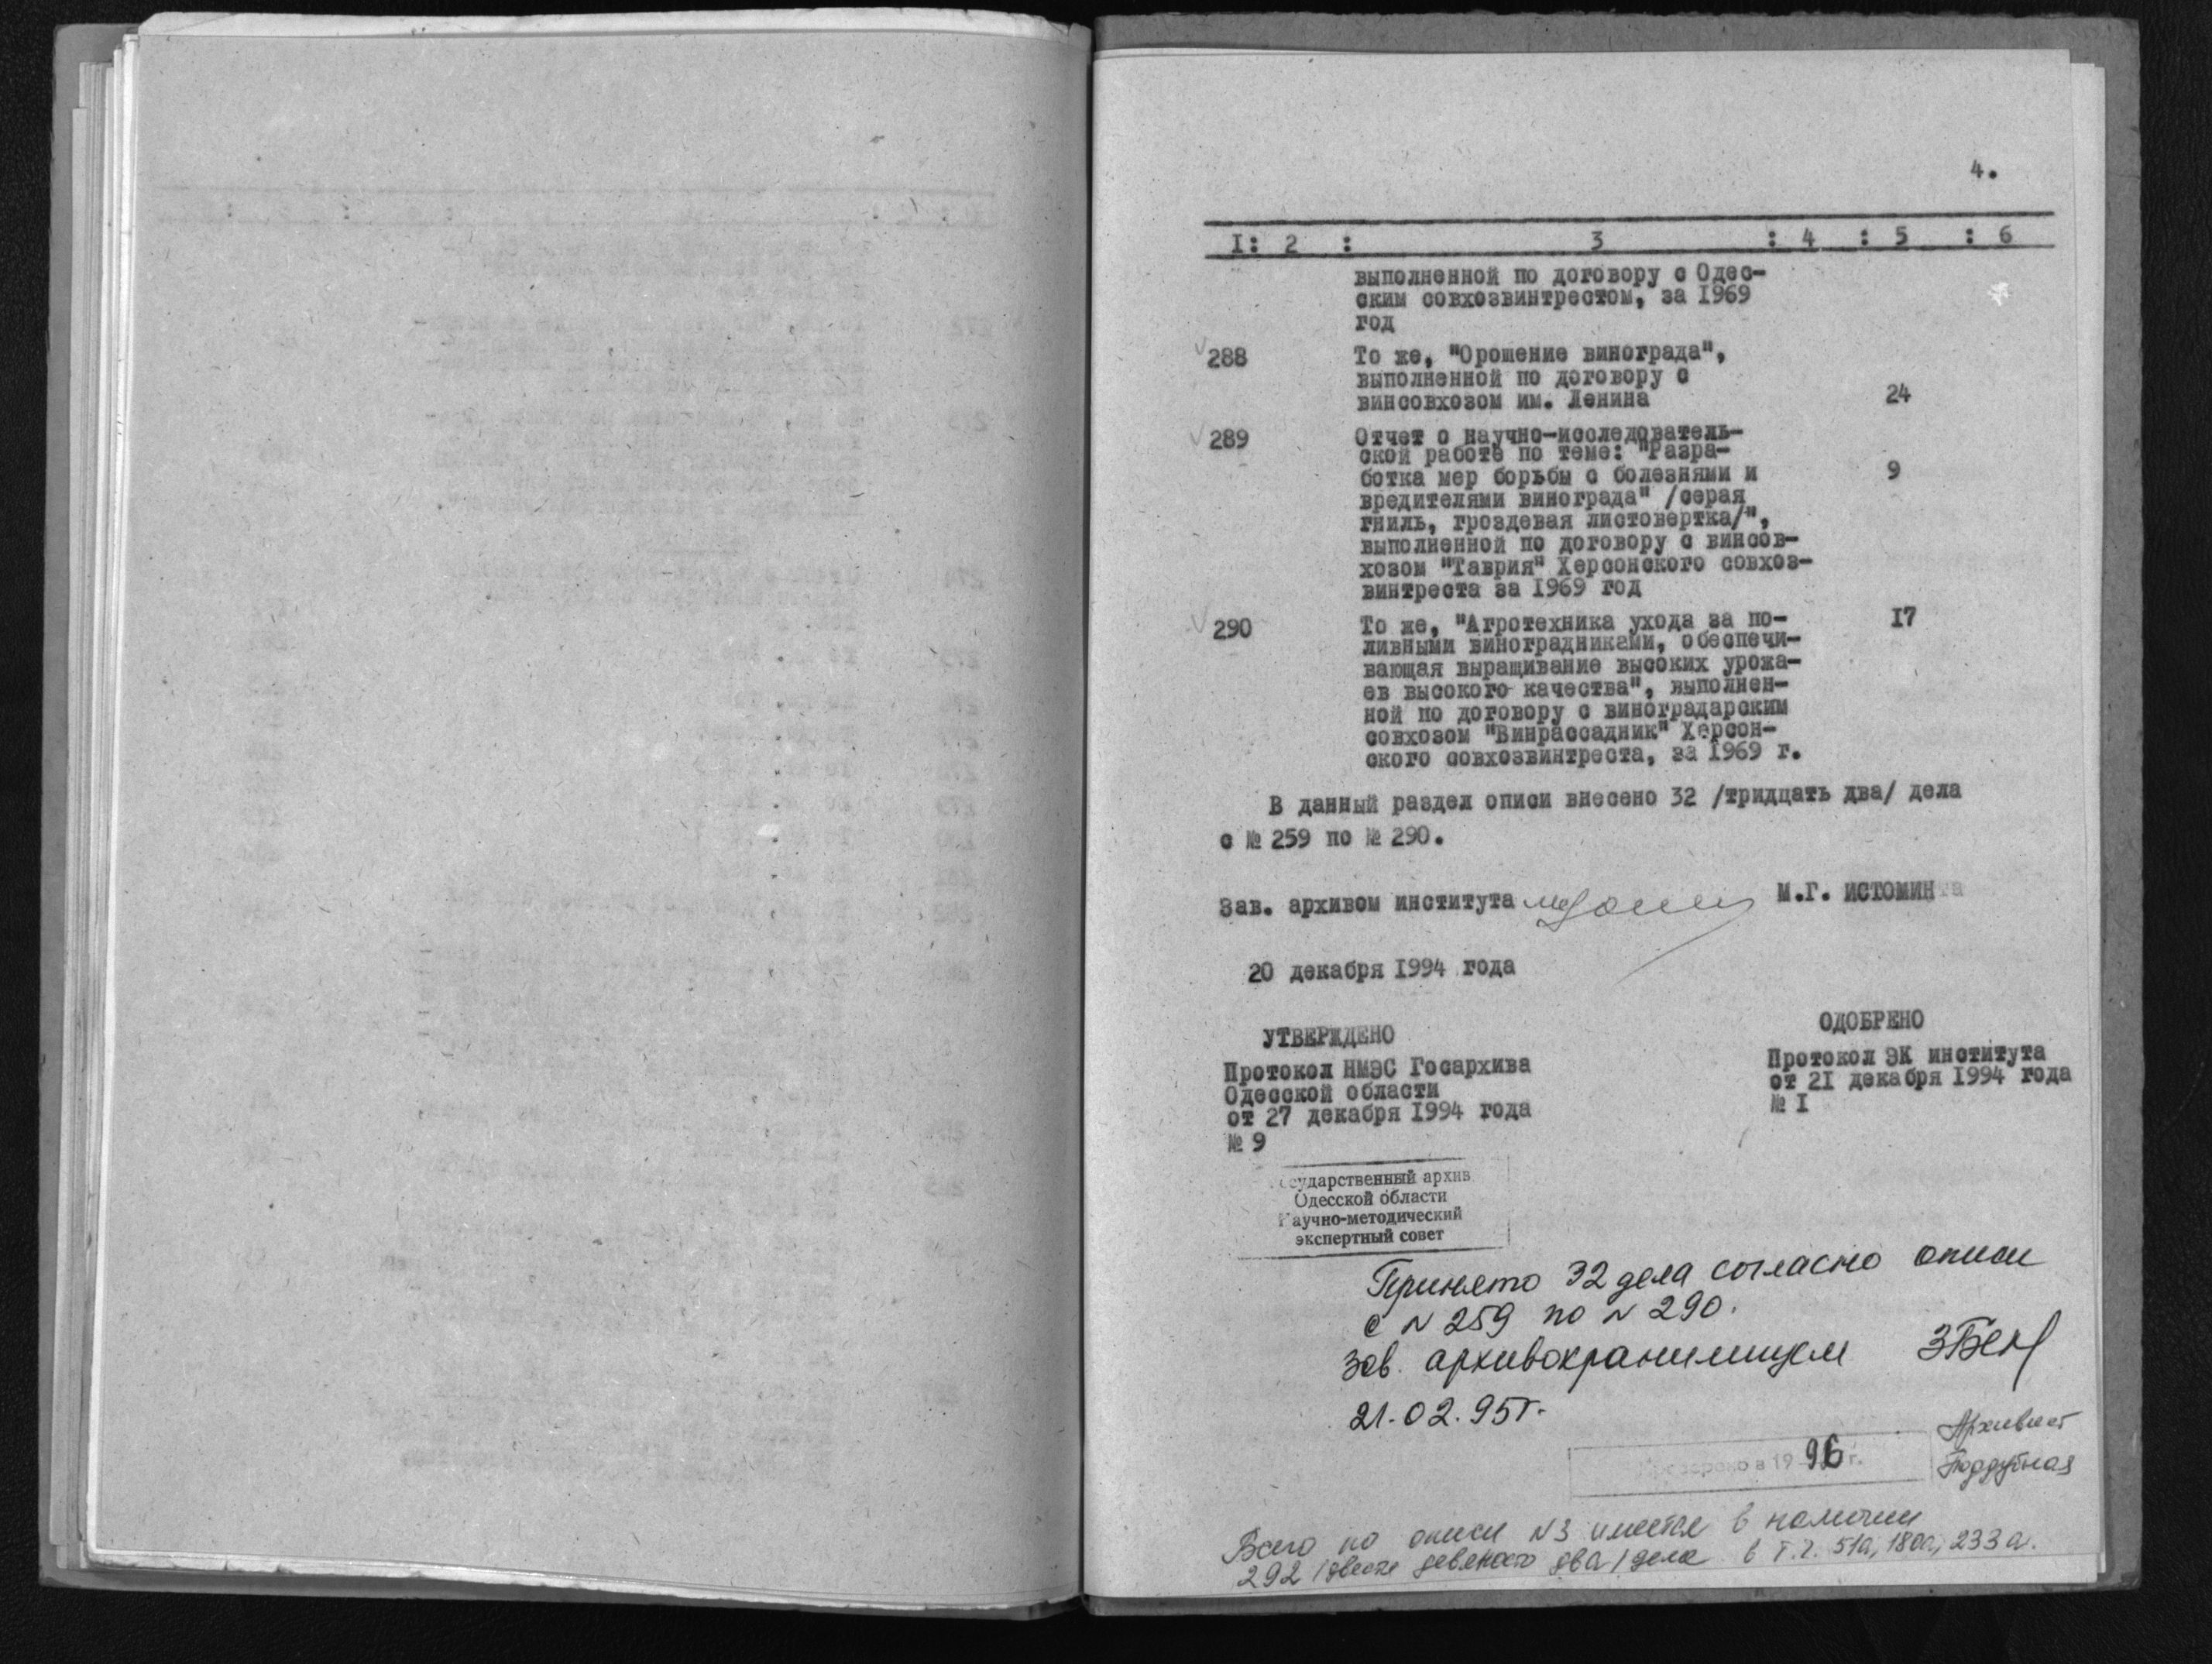 4.
I: 2 : 3 : 4 : 5 : 6
выполненной по договору с Одес-
ским совхозвинтрестом, за 1969
год
288 То же, "Орошение винограда",
выполненной по договору с
винсовхозом им. Ленина 24
289 Отчет о научно-исследователь-
ской работе по теме: "Разра-
ботка мер борьбы с болезнями и 9
вредителями винограда" /серая
гниль, гроздевая листовертка/",
выполненной по договору с винсов-
хозом "Таврия" Херсонского совхоз-
винтреста за 1969 год
290 То же, "Агротехника ухода за по- 17
ливными виноградниками, обеспечи-
вающая выращивание высоких урожа-
ев высокого качества", выполнен-
ной по договору с виноградарским
совхозом "Винрассадник" Херсон-
ского совхозвинтреста, за 1969 г.
В данный раздел описи внесено 32 /тридцать два/ дела
с № 259 по № 290.
Зав. архивом института М.Г. ИСТОМИНА
20 декабря 1994 года
УТВЕРЖДЕНО
Протокол НМЭС Госархива
Одесской области
от 27 декабря 1994 года
№ 9
ОДОБРЕНО
Протокол ЭК института
от 21 декабря 1994 года
№ I
Государственный архив
Одесской области
Научно-методический
экспертный совет
Принято 32 дела согласно описи
с N 259 по N 290.
Зав. архивохранилищем
21.02.95г.
Проверено в 1996 г.
Архивист
Поддубная
Всего по описи N3 имеется в наличии
292 /двести девяносто два/ дела в т.ч. 51а, 180а, 233а.